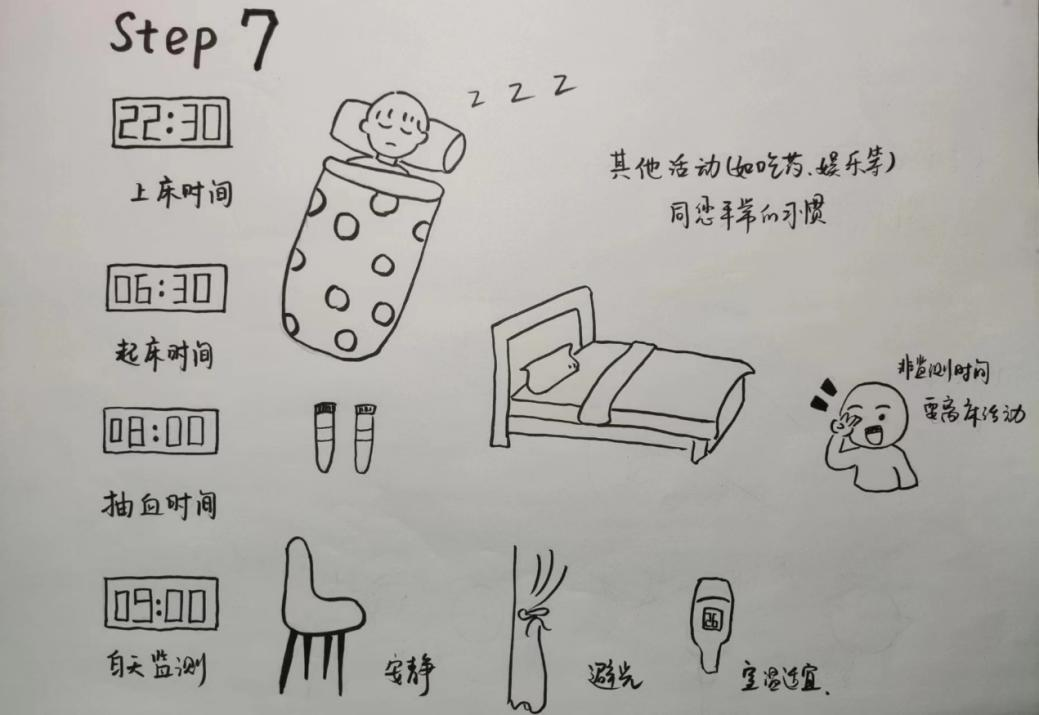 Step 7
22:30
上床时间
z z z
其他活动(如吃药、娱乐等)
同您平常的习惯
06:30
起床时间
非监测时间
要离床活动
08:00
抽血时间
09:00
白天监测
安静
避光
26
室温适宜.